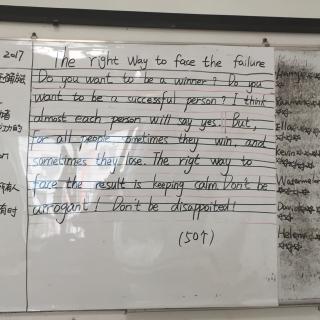 2017
The right Way to face the failure
Do you want to be a winner? Do you
want to be a successful person? I think
almost each person will say yes. But,
for all people sometimes they win, and
sometimes they lose. The rigt way to
face the result is keeping calm. Don't be
arrogant! Don't be disappoited!
(50个)
功的
所有人
有时
Ella
Kevin
Watermelon
David
Helen